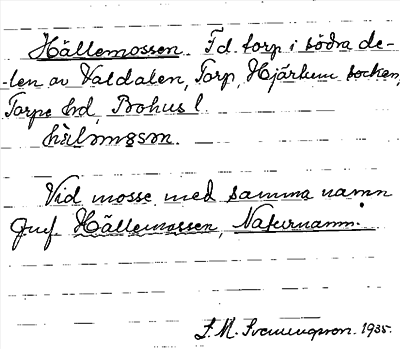 Hällemossen. F.d. torp i södra de-
len av Valdalen, Torp, Hjärtum socken,
Torpe hd, Bohus l.
Vid mosse med samma namn
Jmf. Hällemossen, Naturnamn.
S. M. Svenungsson. 1935.